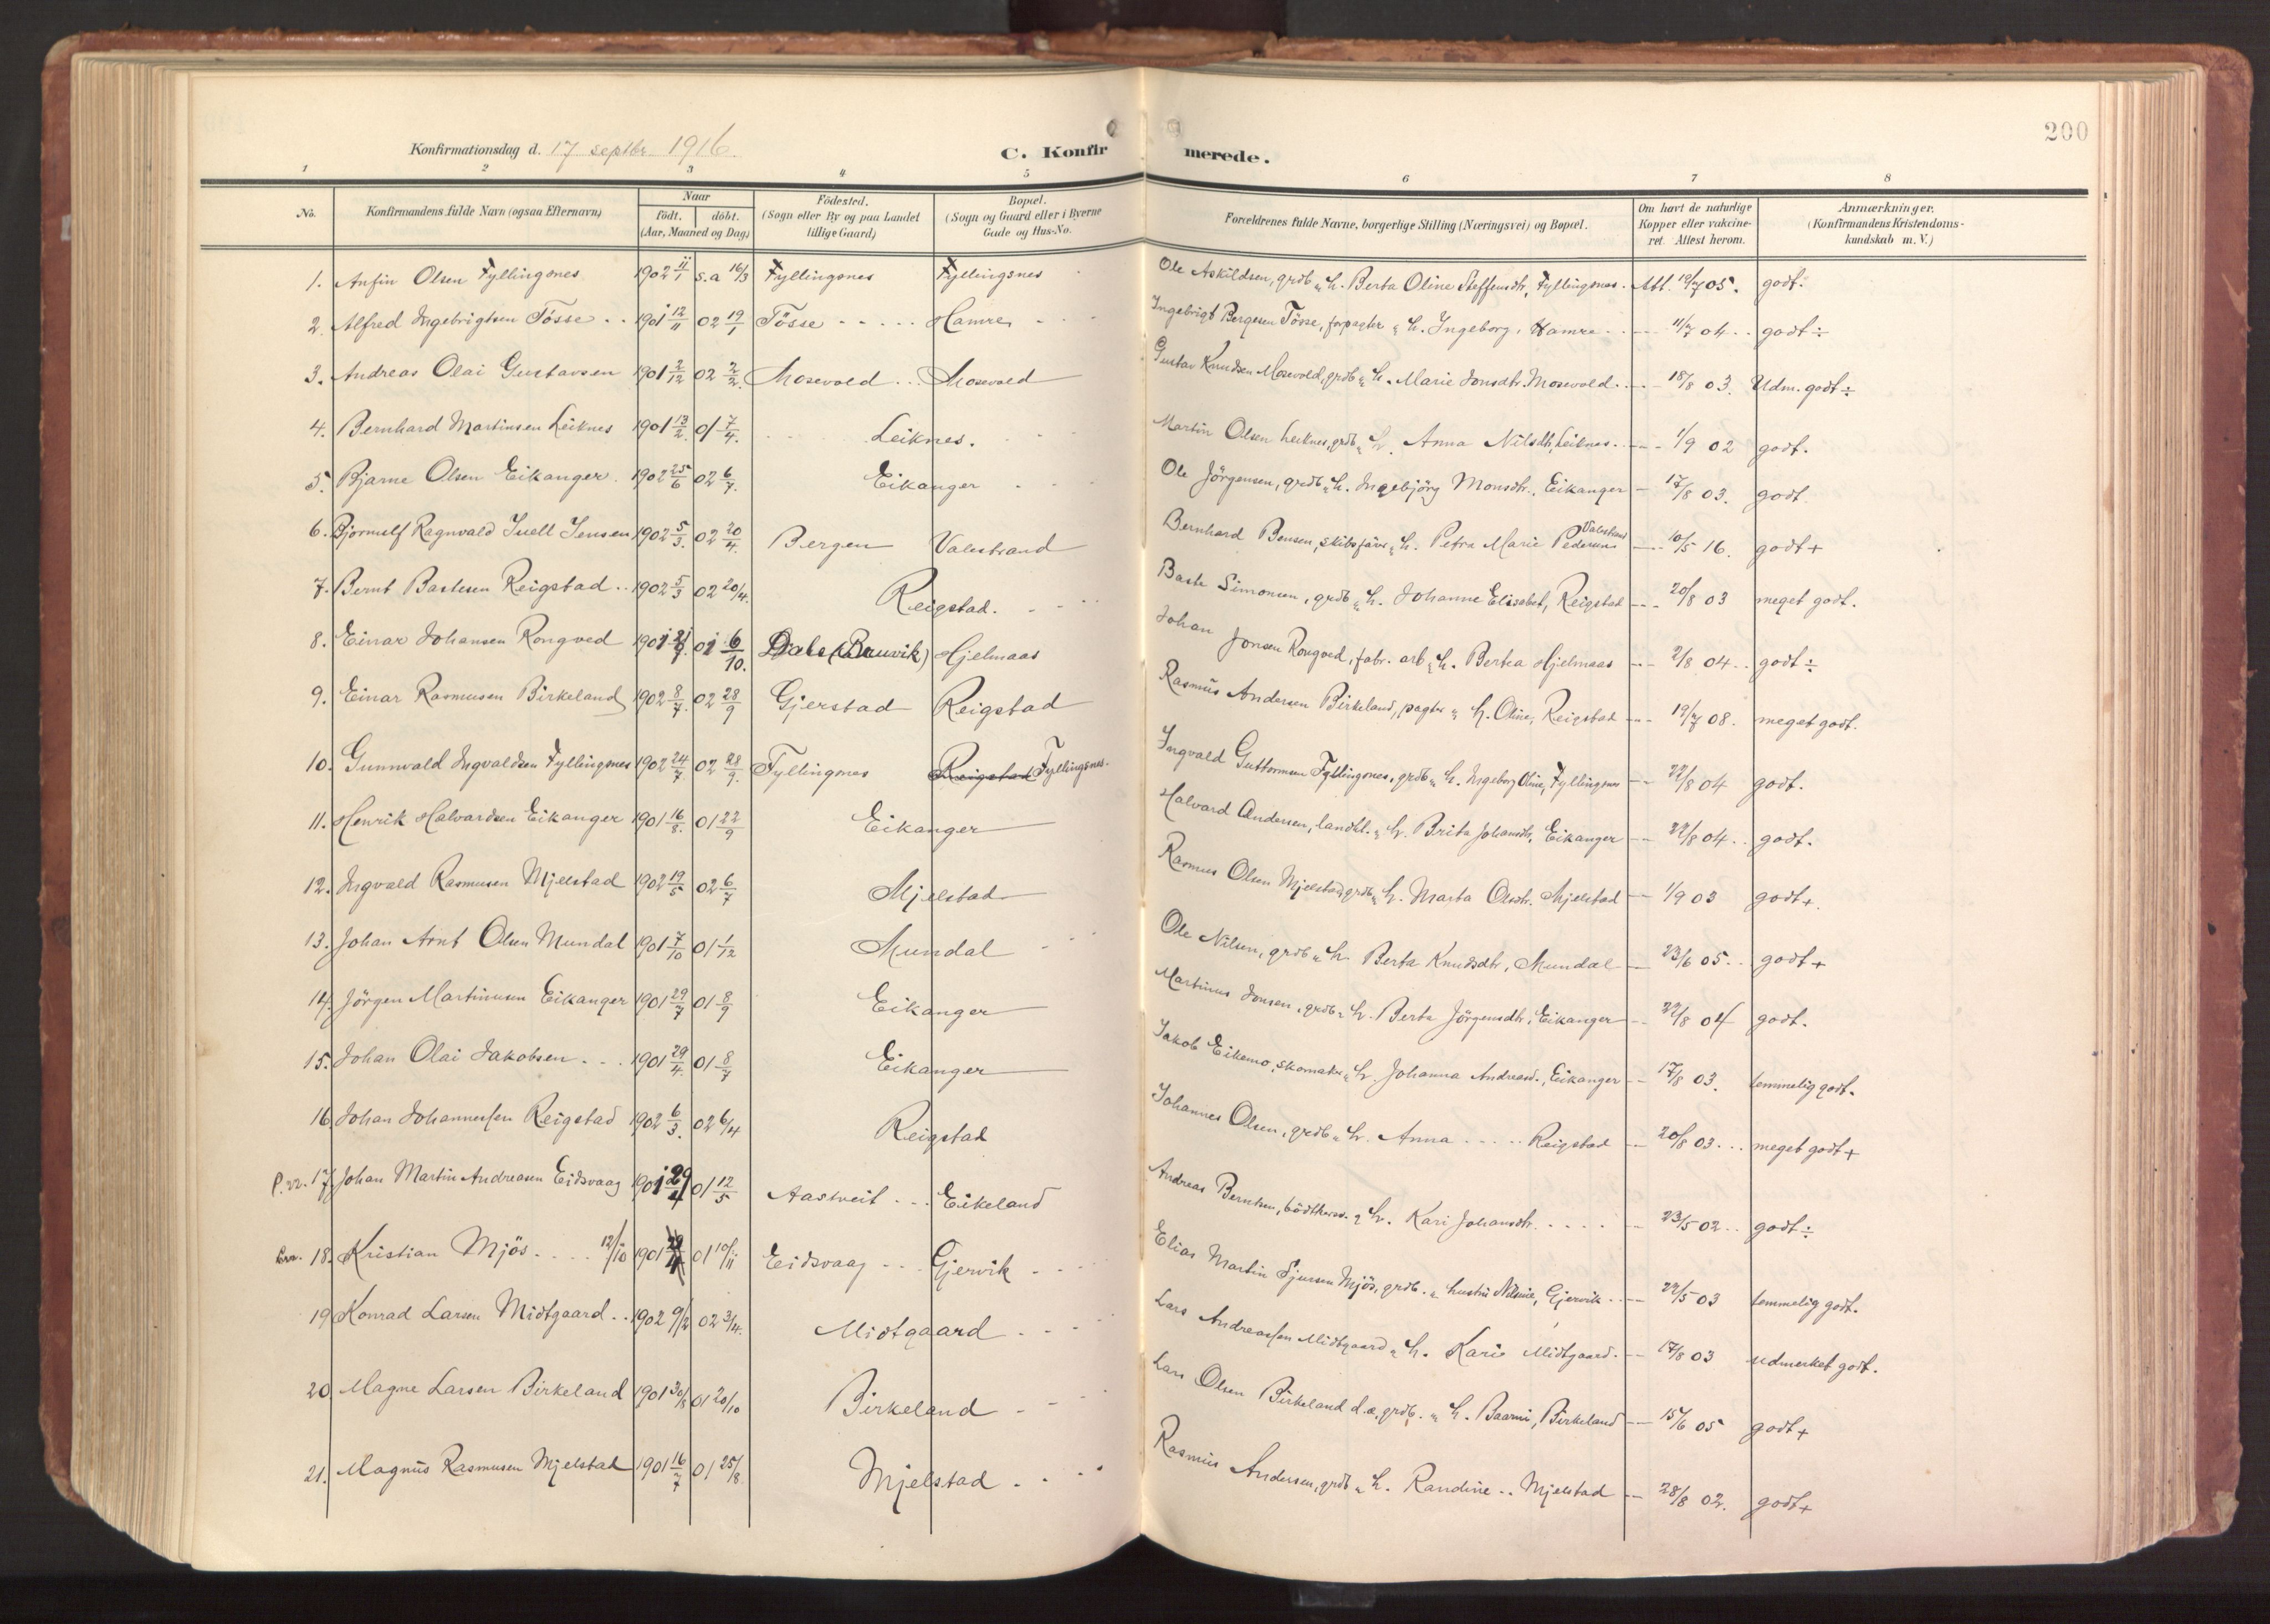 200
Konfirmationsdag d. 17 septbr. 1916.
C. Konfirmerede.
1 2 3 4 5 6 7 8
No. Konfirmandens fulde Navn (ogsaa Efternavn) Naar födt. döbt. (Aar, Maaned og Dag) Födested. (Sogn eller By og paa Landet tillige Gaard) Bopæl. (Sogn og Gaard eller i Byerne Gade og Hus-No. Forældrenes fulde Navne, borgerlige Stilling (Næringsvei) og Bopæl. Om havt de naturlige Kopper eller vakcineret. Attest herom. Anmærkninger. (Konfirmandens Kristendomskundskab m. V.)
1. Anfin Olsen Fyllingsnes 1902 11/1 s.a 16/3 Fyllingsnes Fyllingsnes Ole Askildsen, grdb. & h. Berta Oline Steffensdtr, Fyllingsnes. Att. 19/7 05. godt.
2. Alfred Ingebrigtsen Tösse 1901 12/11 02 19/1 Tösse Hamre Ingebrigt Bergesen Tösse, forpagter & h. Ingeborg, Hamre 11/7 04 godt ÷
3. Andreas Olai Gustavsen 1901 2/12 02 2/2 Mosevold Mosevold Gustav Knudsen Mosevold, grdb & h. Marie Jonsdtr. Mosevold 18/8 03. Udm. godt ÷
4. Bernhard Martinsen Leiknes 1901 13/2 01 7/4. Leiknes. Martin Olsen Leiknes, grdb & h. Anna Nilsdtr, Leiknes. 1/9 02 godt.
5. Bjarne Olsen Eikanger. 1902 25/6 02 6/7. Eikanger Ole Jörgensen, grdb & h. Ingebjörg Monsdtr., Eikanger 17/8 03. godt.
6. Bjornulf Ragnvald Juell Jensen 1902 5/3. 02 20/4. Bergen Valestrand Bernhard Bensen, skibsförer & h. Petra Marie Pedersen Valestrand 10/5 16. godt +
7. Bernt Bastesen Reigstad 1902 5/3 02 20/4. Reigstad. Baste Simonsen, grdb & h. Johanne Elisabet, Reigstad 20/8 03 meget godt.
8. Einar Johansen Rongved 1901 01 6/10. Dale (Bruvik) Hjelmaas Johan Jonsen Rongved, fabr. arb & h. Berta Hjelmaas 2/8 04 godt ÷
9. Einar Rasmusen Birkeland 1902 8/7. 02 28/9 Gjerstad Reigstad Rasmus Andersen Birkeland, pagter & h. Oline, Reigstad 19/7 08. meget godt.
10. Gunnvald Ingvaldsen Fyllingsnes 1902 24/7 02 28/9. Fyllingsnes Reigstad Fyllingsnes. Ingvald Guttormsen Fyllingsnes, grdb & h. Ingeborg Oline, Fyllingsnes 22/8 04 godt.
11. Henrik Halvardsen Eikanger 1901 16/8. 01 22/9 Eikanger Halvard Andersen, landhl. & h. Brita Johansdtr, Eikanger 22/8 04 godt.
12. Ingvald Rasmusen Mjelstad 1902 19/5 02 6/7 Mjelstad Rasmus Olsen Mjelstad, grdb & h. Marta Olsdtr. Mjelstad 1/9 03 godt +.
13. Johan Arnt Olsen Mundal 1901 7/10 01 1/12 Mundal Ole Nilsen, grdb & h. Berta Knudsdtr, Mundal 23/6 05 godt +
14. Jörgen Martinusen Eikanger 1901 29/7 01 8/9 Eikanger Martinus Jonsen, grdb & h. Berta Jörgensdtr, Eikanger 22/8 04 godt.
15. Johan Olai Jakobsen 1901 29/4. 01 8/7 Eikanger Jakob Eikemo, skomaker & h. Johanna Andreasd., Eikanger 17/8 03. temmelig godt.
16. Johan Johannessen Reigstad 1902 6/3. 02 6/4 Reigstad Johannes Olsen, grdb & h. Anna Reigstad 20/8 03 meget godt +
P. 22. 17. Johan Martin Andreasen Eidsvaag 1901 29/4 01 12/5 Aastveit Eikeland Andreas Berntsen, bödkersv. & h. Kari Johansdtr. 23/5 02 godt ÷
18. Kristian Mjös 12/10 1901 01 10/11 Eidsvaag Gjervik Elias Martin Sjursen Mjös, grdb. & hustru Nilsine, Gjervik 22/5 03 temmelig godt.
19 Konrad Larsen Midtgaard 1902 9/2 02 3/4. Midtgaard Lars Andreassen Midtgaard & h. Kari Midtgaard. 17/8 03 udmerket godt.
20 Magne Larsen Birkeland 1901 30/8 01 20/10 Birkeland Lars Olsen Birkeland d.æ. grdb. & h. Baarni, Birkeland 15/6 05 godt +
21. Magnus Rasmusen Mjelstad 1901 16/7 01 25/8. Mjelstad Rasmus Andersen, grdb & h. Randine Mjelstad 28/8 02. godt +